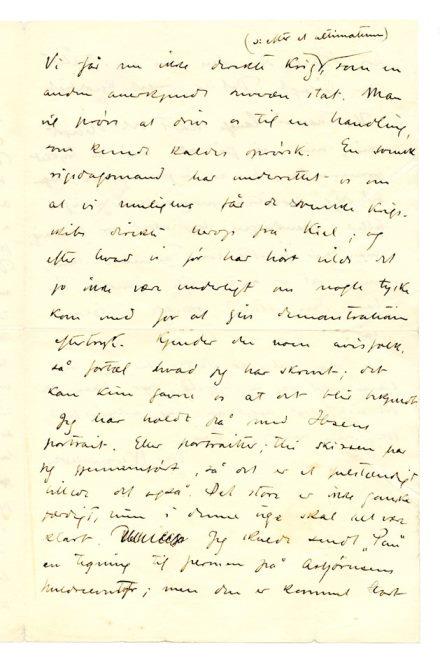 (ɔ: efter et ultimatum)
Vi får nu ikke direkte krig, som en
anden anerkjendt suveræn stat. Man
vil prøve at drive os til en handling,
som kunde kaldes oprørsk. En svensk
rigsdagsmand har underrettet os om
at vi muligens får de svenske krigs-
skibe direkte herop fra Kiel; og
efter hvad vi før har hørt vilde det
jo ikke være underligt om nogle tyske
kom med for at give demonstrationen
eftertryk. Kjender du noen avisfolk,
så fortæl hvad jeg har skrevet; det
kan kun gavne os at det blir bekjendt
Jeg har holdt på med Ibsens
portrait. Eller portraiter, thi skissen har
jeg gjennemført, så det er et selvstændigt
billede det også. Det store er ikke ganske
færdigt, men i denne uge skal alt være
klart. Jeg skulde sendt "Pan"
en tegning til permen på Asbjørnsens
huldreeventyr; men den er kommet bort